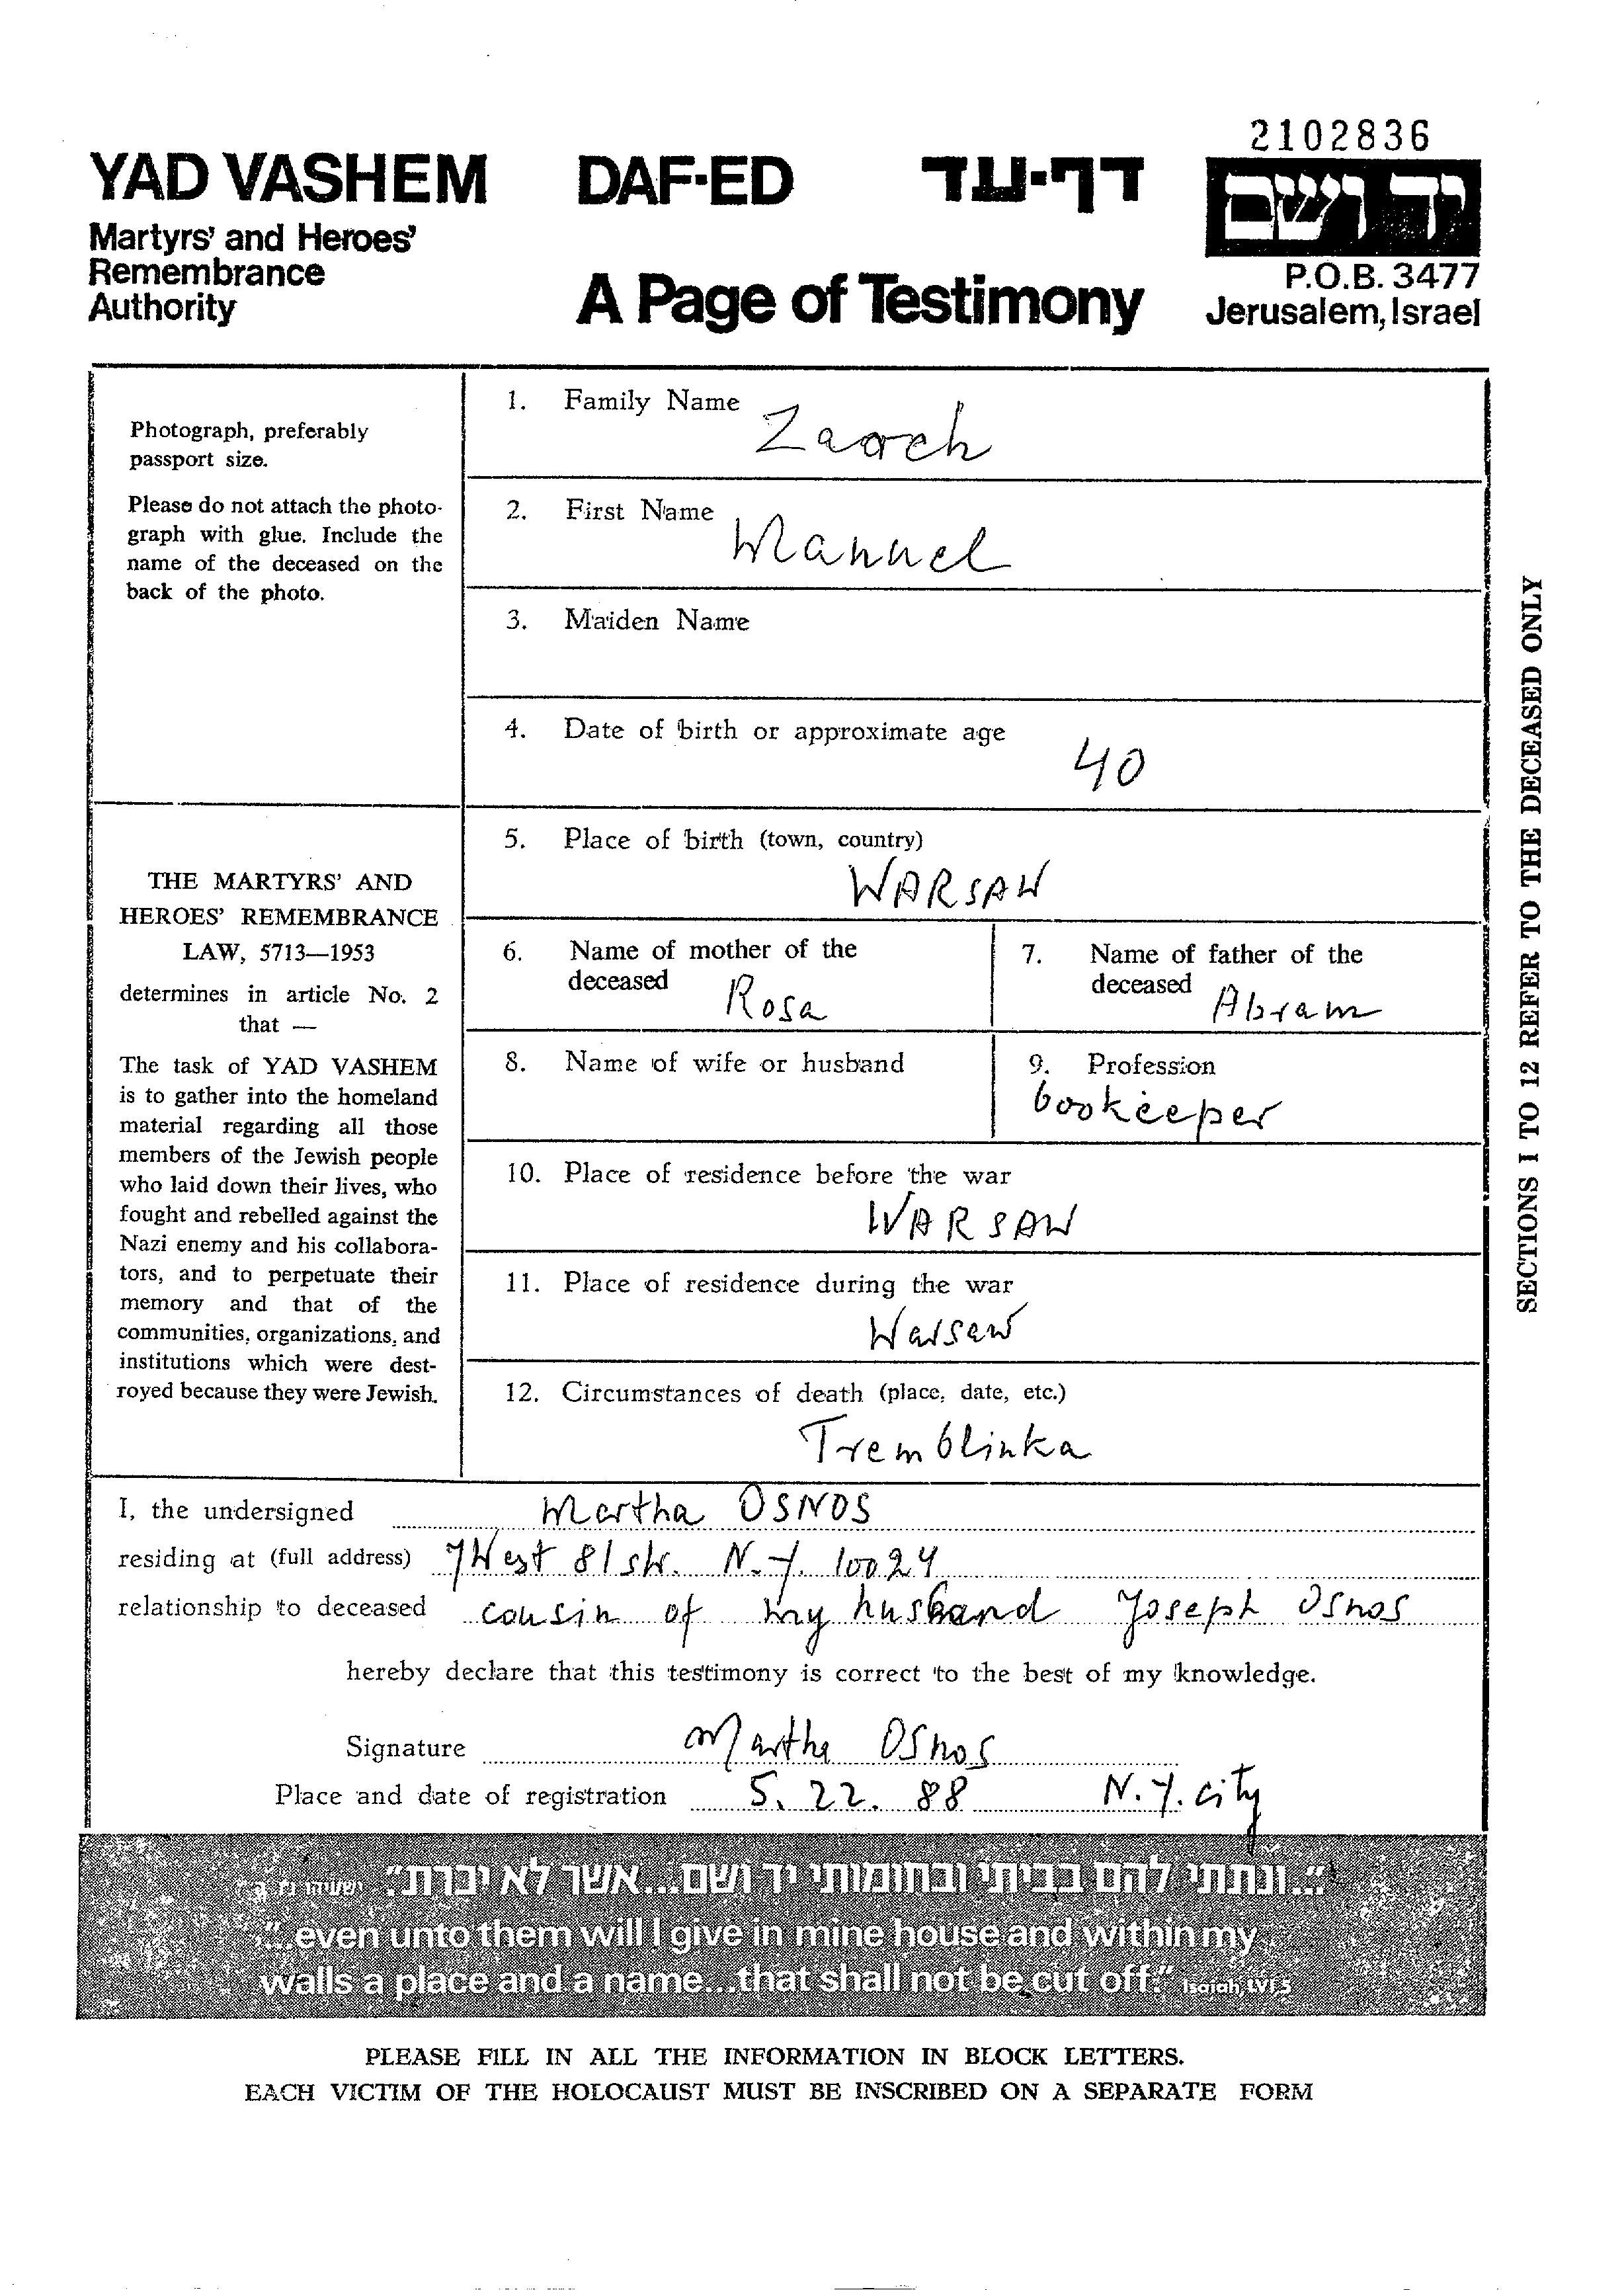 2102836
YAD VASHEM DAF-ED דף-עד
יד ושם
Martyrs' and Heroes'
Remembrance
Authority
A Page of Testimony
P.O.B. 3477
Jerusalem, Israel
Photograph, preferably
passport size.
Please do not attach the photo-
graph with glue. Include the
name of the deceased on the
back of the photo.
THE MARTYRS' AND
HEROES' REMEMBRANCE
LAW, 5713—1953
determines in article No. 2
that —
The task of YAD VASHEM
is to gather into the homeland
material regarding all those
members of the Jewish people
who laid down their lives, who
fought and rebelled against the
Nazi enemy and his collabora-
tors, and to perpetuate their
memory and that of the
communities, organizations, and
institutions which were dest-
royed because they were Jewish.
1. Family Name
Zaoch
2. First Name
Manuel
3. Maiden Name
4. Date of birth or approximate age
40
5. Place of birth (town, country)
WARSAW
6. Name of mother of the
deceased Rosa
7. Name of father of the
deceased Abram
8. Name of wife or husband
9. Profession
bookeeper
10. Place of residence before the war
WARSAW
11. Place of residence during the war
Warsaw
12. Circumstances of death (place, date, etc.)
Tremblinka
SECTIONS 1 TO 12 REFER TO THE DECEASED ONLY
I, the undersigned Martha OSNOS
residing at (full address) 7 West 81 str. N.Y. 10024
relationship to deceased cousin of my husband Joseph Osnos
hereby declare that this testimony is correct to the best of my knowledge.
Signature Martha Osnos
Place and date of registration 5. 22. 88 N.Y. city
"...ונתתי להם בביתי ובחומותי יד ושם...אשר לא יכרת." ישעיהו נו ה
"...even unto them will I give in mine house and within my
walls a place and a name...that shall not be cut off." Isaiah, LVI 5
PLEASE FILL IN ALL THE INFORMATION IN BLOCK LETTERS.
EACH VICTIM OF THE HOLOCAUST MUST BE INSCRIBED ON A SEPARATE FORM